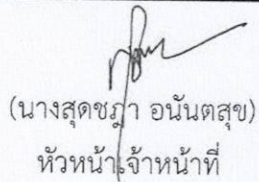 (นางสุดชฎา อนันตสุข)
หัวหน้าเจ้าหน้าที่